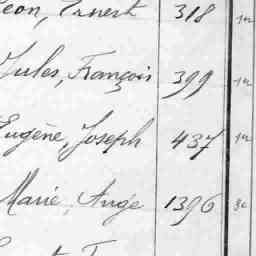 Léon, Ernest 318
Jules, François 399
Eugène, Joseph 437
Marie, Ange 1396